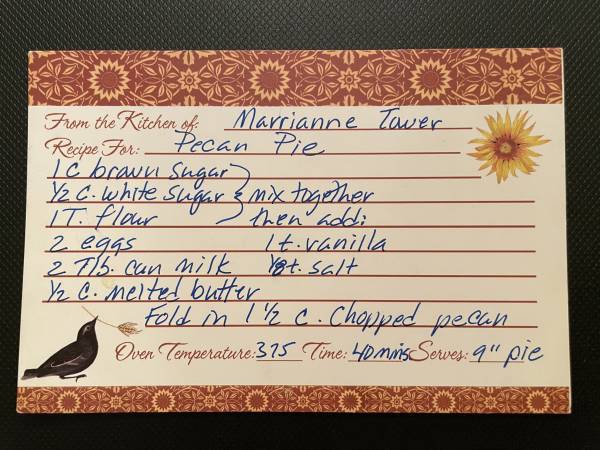 From the Kitchen of: Marrianne Tower
Recipe For: Pecan Pie
1 C brown sugar
½ c. white sugar } mix together
1 T. flour then add:
2 eggs 1 t. vanilla
2 Tlb. can milk ⅛ t. salt
½ c. melted butter
Fold in 1 ½ c. Chopped pecan
Oven Temperature: 375 Time: 40 mins Serves: 9" pie